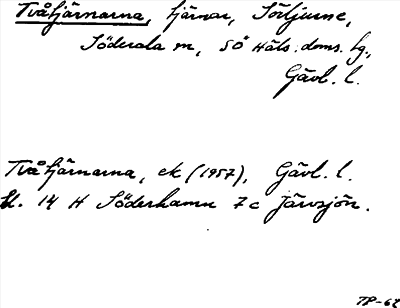 Tvåtjärnarna, tjärnar, Sörljusne,
Söderala sn, SÖ Häls. doms. fg.,
Gävl. l.
Tvåtjärnarna, ek (1957), Gävl. l.
bl. 14 H Söderhamn 7c Järvsjön.
TP-62